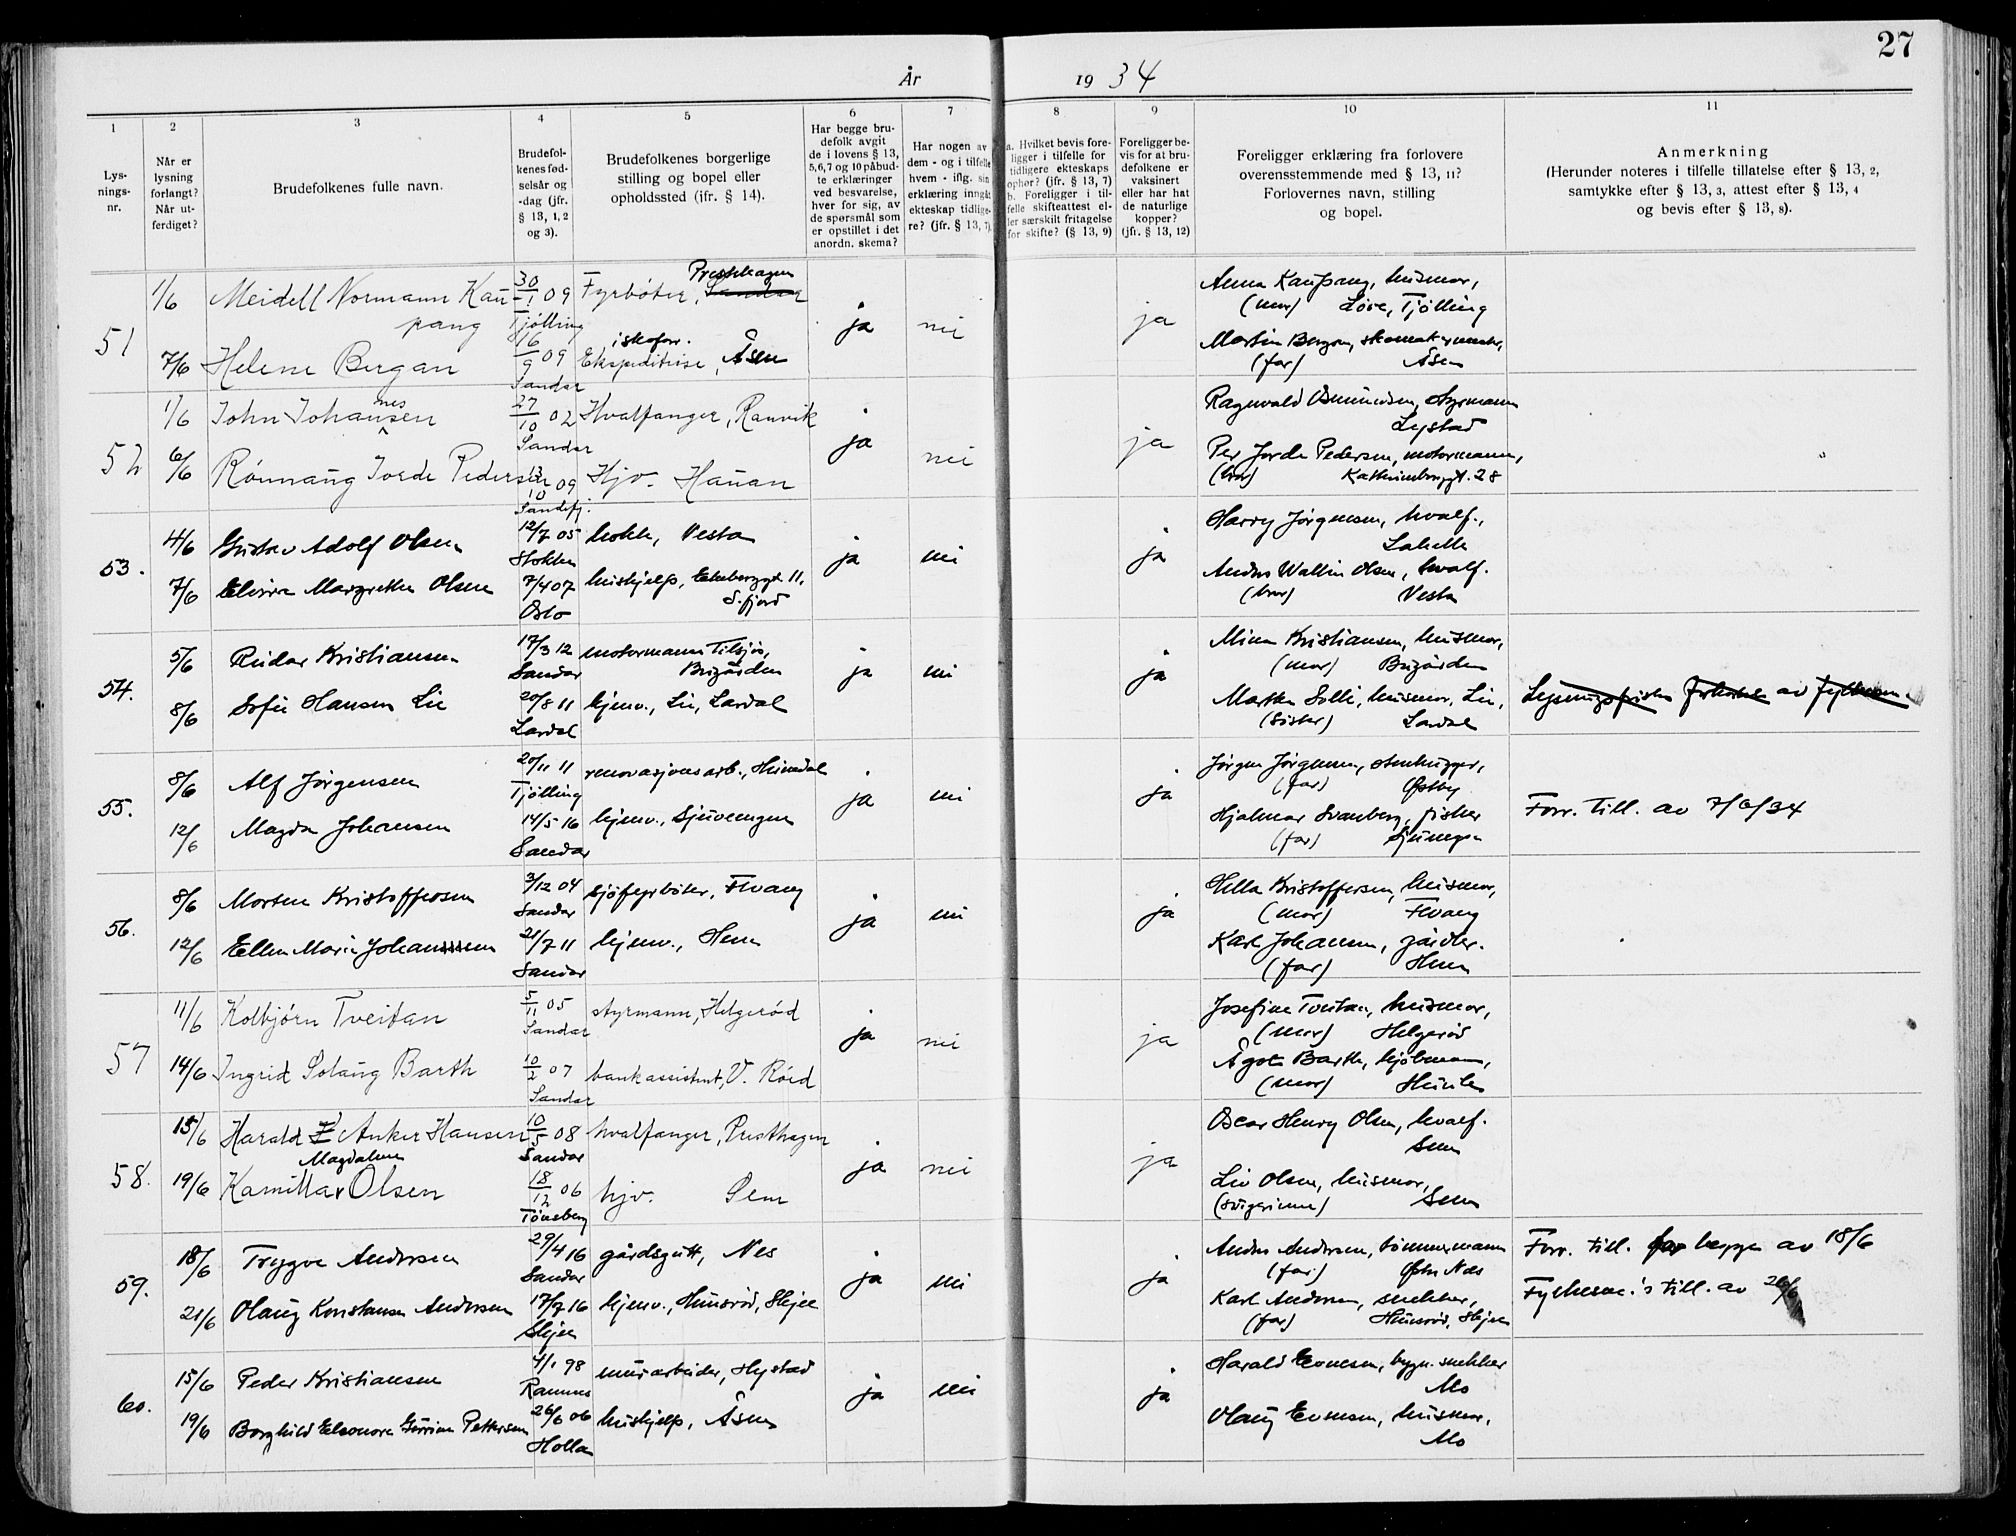 27
År 1934
1 2 3 4 5 6 7 8 9 10 11
Lys-
nings-
nr.
Når er
lysning
forlangt?
Når ut-
ferdiget?
Brudefolkenes fulle navn.
Brudefol-
kenes fød-
selsår og
-dag (jfr.
§ 13, 1, 2
og 3).
Brudefolkenes borgerlige
stilling og bopel eller
opholdssted (jfr. § 14).
Har begge bru-
defolk avgit
de i lovens § 13,
5,6,7 og 10 påbud-
te erklæringer
ved besvarelse,
hver for sig, av
de spørsmål som
er opstillet i det
anordn. skema?
Har nogen av
dem - og i tilfelle
hvem - iflg. sin
erklæring inngåt
ekteskap tidlige-
re? (jfr. § 13, 7)
a. Hvilket bevis fore-
ligger i tilfelle for
tidligere ekteskaps
ophør? (jfr. § 13, 7)
b. Foreligger i til-
felle skifteattest el-
ler særskilt fritagelse
for skifte? (§ 13, 9)
Foreligger be-
vis for at bru-
defolkene er
vaksinert
eller har hat
de naturlige
kopper?
(jfr. § 13, 12)
Foreligger erklæring fra forlovere
overensstemmende med § 13, 11?
Forlovernes navn, stilling
og bopel.
Anmerkning
(Herunder noteres i tilfelle tillatelse efter § 13, 2,
samtykke efter § 13, 3, attest efter § 13, 4
og bevis efter § 13, 8).
51
1/6 Meidell Normann Kau-
pang
30/1 09 Tjølling
Fyrbøter, Sandar Presthagen
ja nei ja
Anna Kaupang, husmor,
(mor) Løve, Tjølling
7/6 Helene Bergan
16/9 09 Sandar
Ekspeditrise i skoforr., Åsen
Martin Bergan, skomakermester,
(far) Åsen
52
1/6 John Johannesen
27/10 02 Sandar
Hvalfanger, Ranvik
ja nei ja
Ragnvald Osmundsen, styrmann
Lystad
6/6 Rønnaug Jorde Pedersen
13/10 09 Sandefj.
Hjv. Hauan
Per Jorde Pedersen, motormann,
(bror) Kathrineborggt. 28
53.
4/6 Gustav Adolf Olsen
12/7 05 Stokke
kokk, Vesta
ja nei ja
Harry Jørgensen, hvalf.,
7/6 Elvira Margrethe Olsen
7/4 07 Oslo
hushjelp, Ekebergt. 11,
S.fjord
Anders Wallin Olsen, hvalf.
(bror) Vesta
54.
5/6 Reidar Kristiansen
17/3 12 Sandar
motormann tilsjøs,
Bugården
ja nei ja
Mina Kristiansen, husmor,
(mor) Bugården
8/6 Sofie Hansen Lie
20/8 11 Lardal
hjemv., Lie, Lardal
Marthe Solli, husmor, Lie,
(søster) Lardal
Lysningsfristen forkortet av fylkesm.
55.
8/6 Alf Jørgensen
20/11 11 Tjølling
renovasjonsarb., Heimdal
ja nei ja
Jørgen Jørgensen, stenhugger,
(far) Østby
12/6 Magda Johansen
14/5 16 Sandar
hjemv., Sjuvengen
Hjalmar Svanberg, fisker
(far)
Forr. till. av 7/6/34
56.
8/6 Morten Kristoffersen
3/12 04 Sandar
sjøfyrbøter, Hvang
ja nei ja
Hilla Kristoffersen, husmor,
(mor) Hvang
12/6 Ellen Marie Johanssen
21/7 11 Sandar
hjemv., Hem
Karl Johansen, gårdbr.
(far) Hem
57
11/6 Kolbjørn Tveitan
5/11 05 Sandar
styrmann, Helgerød
ja nei ja
Josefine Tveitan, husmor,
(mor) Helgerød
14/6 Ingrid Solaug Barth
10/2 07 Sandar
bankassistent, V. Rød
Ågot Barth, kjøbmann,
(mor)
58.
15/6 Harald Anker Hansen
10/5 08 Sandar
hvalfanger, Presthagen
ja nei ja
Oscar Henry Olsen, hvalf.
Sem
19/6 Kamilla Magdalene Olsen
18/12 06 Tønsberg
hjv. Sem
Liv Olsen, husmor,
(svigerinne) Sem
59.
18/6 Trygve Andersen
29/4 16 Sandar
gårdsgutt, Nes
ja nei ja
Anders Andersen, tømmermann
(far) Østre Nes
Forr. till. for begge av 18/6
21/6 Olaug Konstanse Andersen
17/7 16 Skjee
hjemv., Hunsrød, Skjee
Karl Andersen, snekker,
(far) Hunsrød, Skjee
Fylkesm.'s till. av 20/6
60.
15/6 Peder Kristiansen
4/1 98 Ramnes
murarbeider, Hystad
ja nei ja
Harald Evensen, bygn. snekker
Mo
19/6 Borghild Eleonora Gurine Pettersen
26/6 06 Holla
hushjelp, Åsen
Olaug Evensen, husmor,
Mo